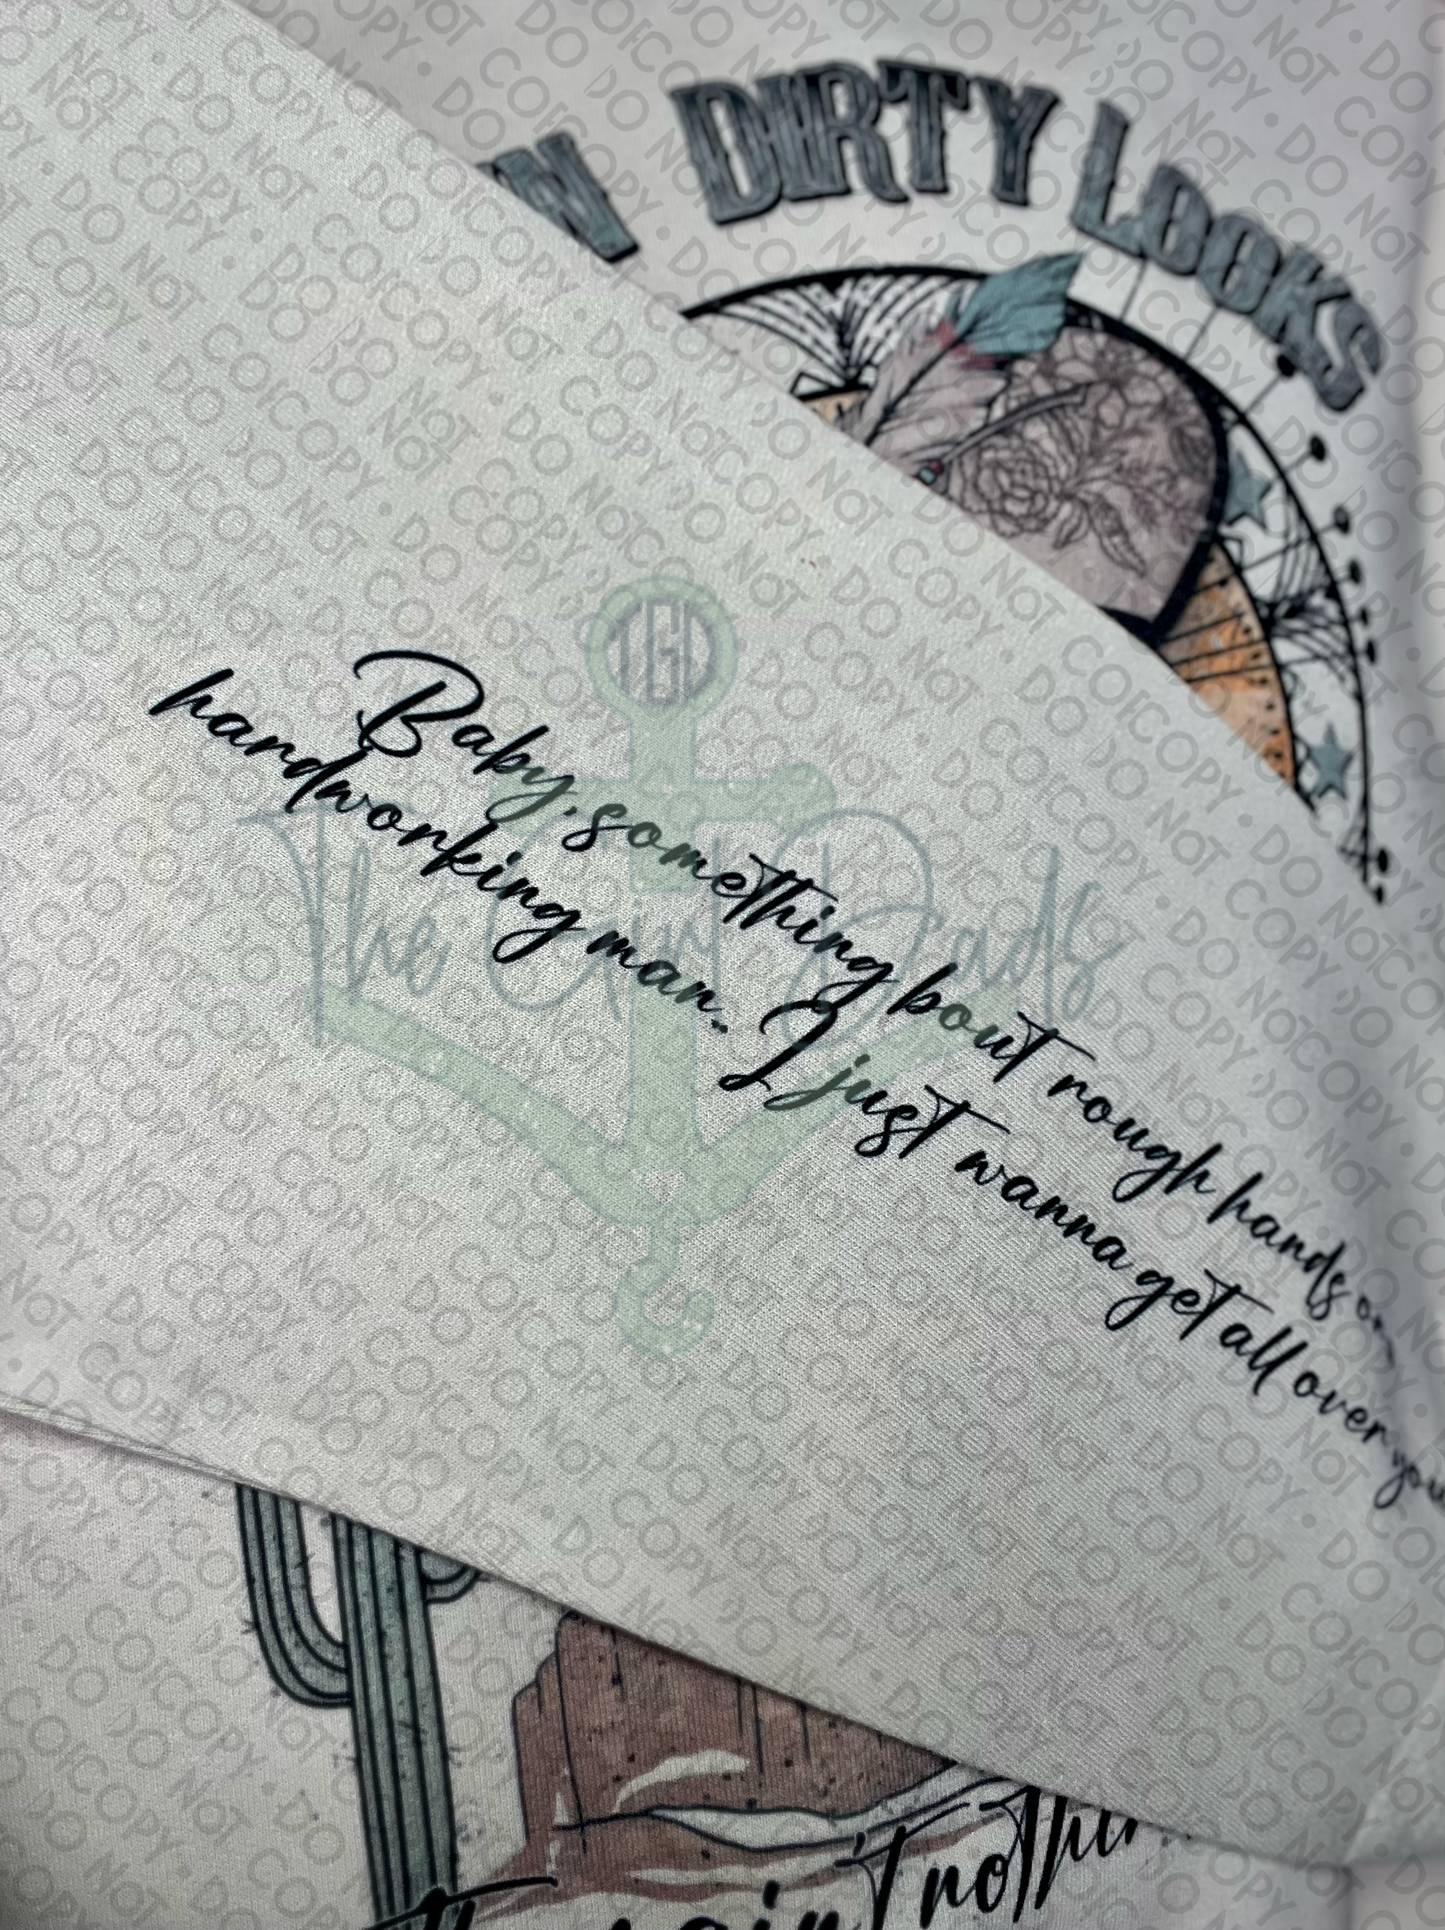 DIRTY LOOKS
TGD
The Girl Dads
Baby, something bout rough hands on
hardworking man. I just wanna get all over you
ain't nothin
DO NOT COPY • DO NOT COPY • DO NOT COPY